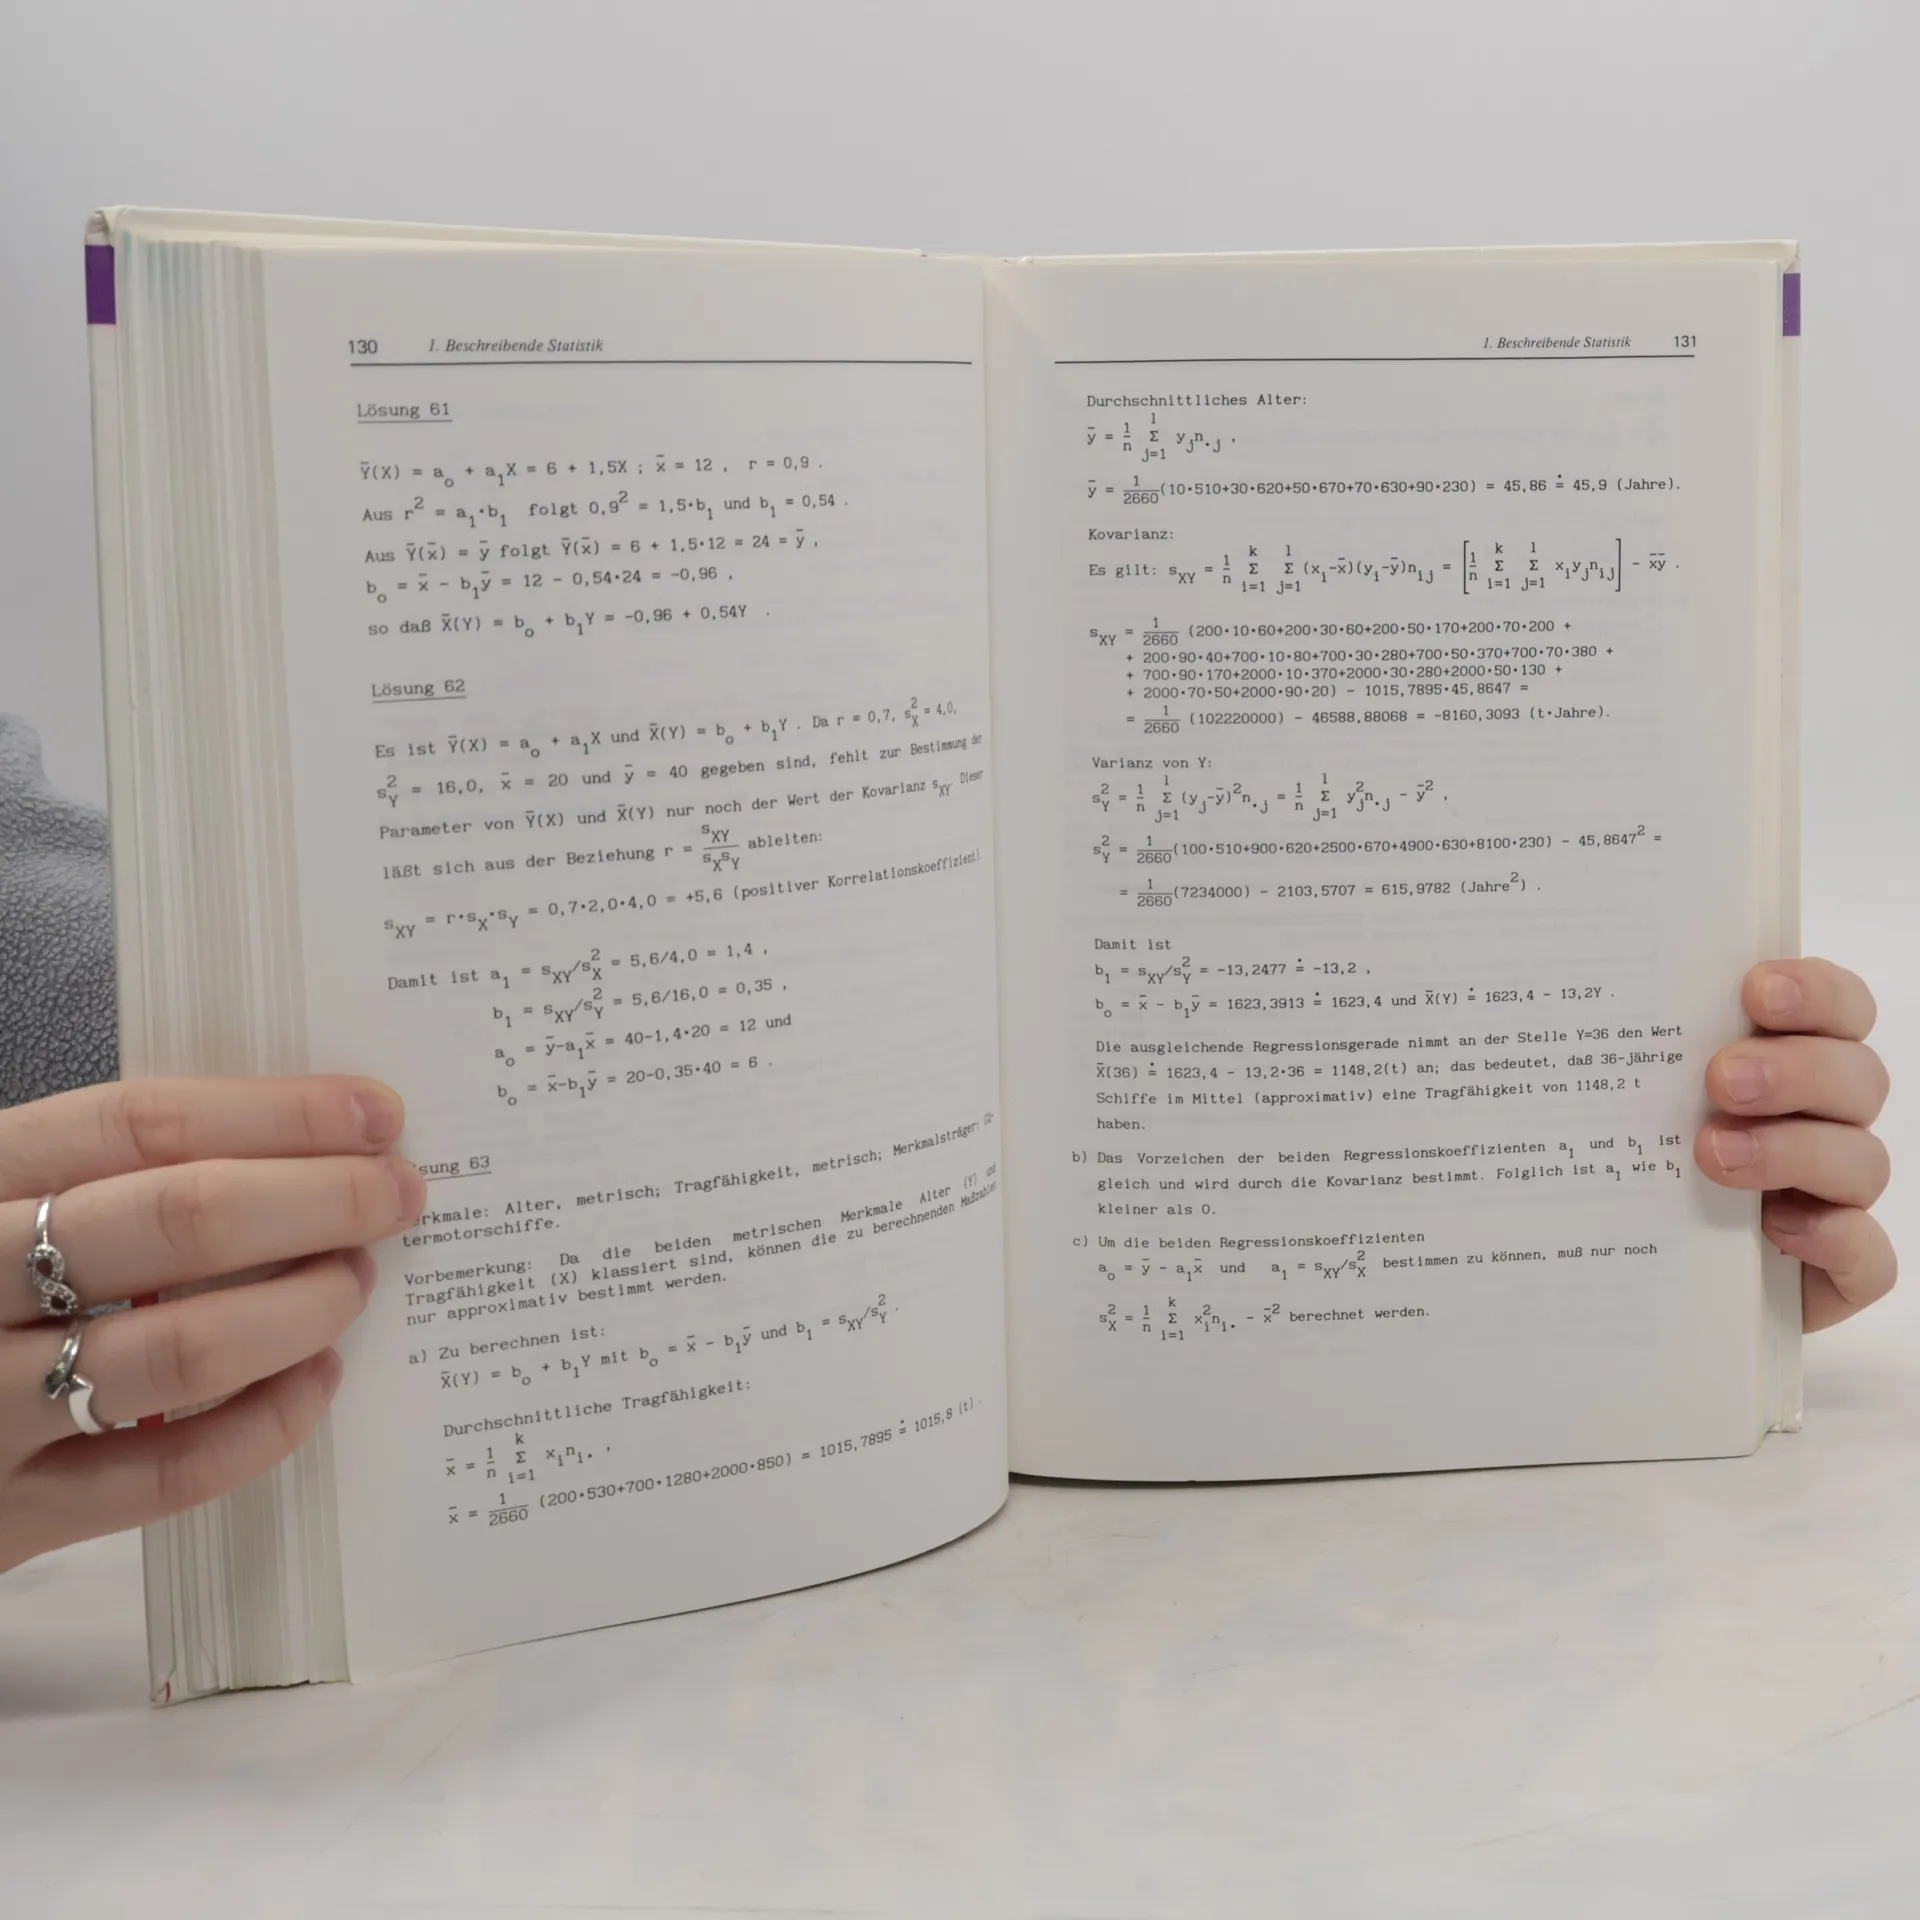 130 1. Beschreibende Statistik
Lösung 61
Ȳ(X) = a₀ + a₁X = 6 + 1,5X ; x̄ = 12 , r = 0,9 .
Aus r² = a₁·b₁ folgt 0,9² = 1,5·b₁ und b₁ = 0,54 .
Aus Ȳ(x̄) = ȳ folgt Ȳ(x̄) = 6 + 1,5·12 = 24 = ȳ ,
b₀ = x̄ - b₁ȳ = 12 - 0,54·24 = -0,96 ,
so daß X̄(Y) = b₀ + b₁Y = -0,96 + 0,54Y .
Lösung 62
Es ist Ȳ(X) = a₀ + a₁X und X̄(Y) = b₀ + b₁Y . Da r = 0,7, s²_X = 4,0,
s²_Y = 16,0, x̄ = 20 und ȳ = 40 gegeben sind, fehlt zur Bestimmung der
Parameter von Ȳ(X) und X̄(Y) nur noch der Wert der Kovarianz s_XY. Dieser
läßt sich aus der Beziehung r = s_XY/(s_X s_Y) ableiten:
s_XY = r·s_X·s_Y = 0,7·2,0·4,0 = +5,6 (positiver Korrelationskoeffizient).
Damit ist a₁ = s_XY/s²_X = 5,6/4,0 = 1,4 ,
b₁ = s_XY/s²_Y = 5,6/16,0 = 0,35 ,
a₀ = ȳ-a₁x̄ = 40-1,4·20 = 12 und
b₀ = x̄-b₁ȳ = 20-0,35·40 = 6 .
sung 63
rkmale: Alter, metrisch; Tragfähigkeit, metrisch; Merkmalsträger: Gü-
termotorschiffe.
Vorbemerkung: Da die beiden metrischen Merkmale Alter (Y) und
Tragfähigkeit (X) klassiert sind, können die zu berechnenden Maßzahlen
nur approximativ bestimmt werden.
a) Zu berechnen ist:
X̄(Y) = b₀ + b₁Y mit b₀ = x̄ - b₁ȳ und b₁ = s_XY/s²_Y .
Durchschnittliche Tragfähigkeit:
x̄ = 1/n Σ_{i=1}^{k} x_i n_i. ,
x̄ = 1/2660 (200·530+700·1280+2000·850) = 1015,7895 ≐ 1015,8 (t) .
1. Beschreibende Statistik 131
Durchschnittliches Alter:
ȳ = 1/n Σ_{j=1}^{l} y_j n_.j ,
ȳ = 1/2660(10·510+30·620+50·670+70·630+90·230) = 45,86 ≐ 45,9 (Jahre).
Kovarianz:
Es gilt: s_XY = 1/n Σ_{i=1}^{k} Σ_{j=1}^{l} (x_i-x̄)(y_i-ȳ)n_ij = [1/n Σ_{i=1}^{k} Σ_{j=1}^{l} x_i y_j n_ij] - x̄ȳ .
s_XY = 1/2660 (200·10·60+200·30·60+200·50·170+200·70·200 +
+ 200·90·40+700·10·80+700·30·280+700·50·370+700·70·380 +
+ 700·90·170+2000·10·370+2000·30·280+2000·50·130 +
+ 2000·70·50+2000·90·20) - 1015,7895·45,8647 =
= 1/2660 (102220000) - 46588,88068 = -8160,3093 (t·Jahre).
Varianz von Y:
s²_Y = 1/n Σ_{j=1}^{l} (y_j-ȳ)²n_.j = 1/n Σ_{j=1}^{l} y²_j n_.j - ȳ² ,
s²_Y = 1/2660(100·510+900·620+2500·670+4900·630+8100·230) - 45,8647² =
= 1/2660(7234000) - 2103,5707 = 615,9782 (Jahre²) .
Damit ist
b₁ = s_XY/s²_Y = -13,2477 ≐ -13,2 ,
b₀ = x̄ - b₁ȳ = 1623,3913 ≐ 1623,4 und X̄(Y) ≐ 1623,4 - 13,2Y .
Die ausgleichende Regressionsgerade nimmt an der Stelle Y=36 den Wert
X̄(36) ≐ 1623,4 - 13,2·36 = 1148,2(t) an; das bedeutet, daß 36-jährige
Schiffe im Mittel (approximativ) eine Tragfähigkeit von 1148,2 t
haben.
b) Das Vorzeichen der beiden Regressionskoeffizienten a₁ und b₁ ist
gleich und wird durch die Kovarianz bestimmt. Folglich ist a₁ wie b₁
kleiner als 0.
c) Um die beiden Regressionskoeffizienten
a₀ = ȳ - a₁x̄ und a₁ = s_XY/s²_X bestimmen zu können, muß nur noch
s²_X = 1/n Σ_{i=1}^{k} x²_i n_i. - x̄² berechnet werden.